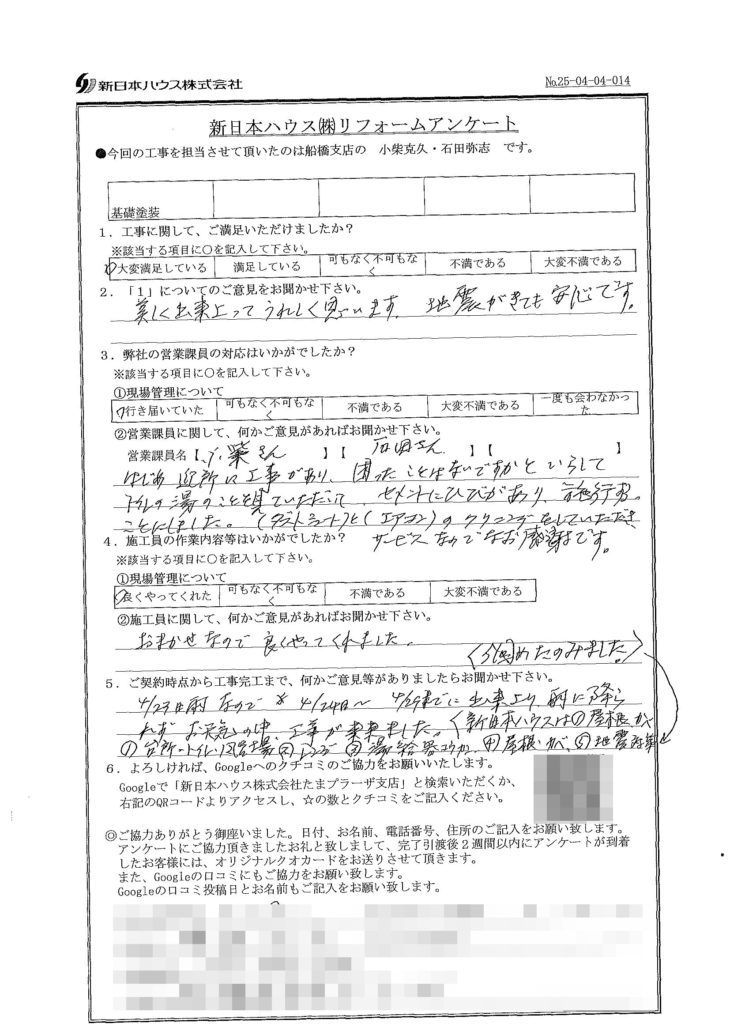 新日本ハウス株式会社
No.25-04-04-014
新日本ハウス㈱リフォームアンケート
●今回の工事を担当させて頂いたのは船橋支店の 小柴克久・石田弥志 です。
基礎塗装
1．工事に関して、ご満足いただけましたか？
※該当する項目に〇を記入して下さい。
大変満足している 満足している 可もなく不可もなく 不満である 大変不満である
2．「1」についてのご意見をお聞かせ下さい。
美しく出来上ってうれしく思います。地震がきても安心です。
3．弊社の営業課員の対応はいかがでしたか？
※該当する項目に〇を記入して下さい。
①現場管理について
行き届いていた 可もなく不可もなく 不満である 大変不満である 一度も会わなかった
②営業課員に関して、何かご意見があればお聞かせ下さい。
営業課員名【小柴さん 】【 石田さん 】【 】
はじめ近所に工事があり、困ったことはないですかといらして
のことを見ていただいて、セメントにひびがあり、施行する
ことにしました。(ダストシュート)と(エアコン)のクリーニングをしていただき
4．施工員の作業内容等はいかがでしたか？ サービスなのでなお感謝です。
※該当する項目に〇を記入して下さい。
①現場管理について
良くやってくれた 可もなく不可もなく 不満である 大変不満である
②施工員に関して、何かご意見があればお聞かせ下さい。
おまかせなので良くやってくれました。
たのみました
5．ご契約時点から工事完工まで、何かご意見等がありましたらお聞かせ下さい。
4/23日雨なので 4/24日〜4/29までに出来上り、雨に降ら
れず お天気の中、工事が出来ました。(新日本ハウスは
①台所・トイレ・風呂場②③湯給器④屋根・かべ、⑤地震
6．よろしければ、Googleへのクチコミのご協力をお願いいたします。
Googleで「新日本ハウス株式会社たまプラーザ支店」と検索いただくか、
右記のQRコードよりアクセスし、☆の数とクチコミをご記入ください。
◎ご協力ありがとう御座いました。日付、お名前、電話番号、住所のご記入をお願い致します。
アンケートにご協力頂きましたお礼と致しまして、完了引渡後２週間以内にアンケートが到着
したお客様には、オリジナルクオカードをお送りさせて頂きます。
また、Googleの口コミにもご協力をお願い致します。
Googleの口コミ投稿日とお名前もご記入をお願い致します。